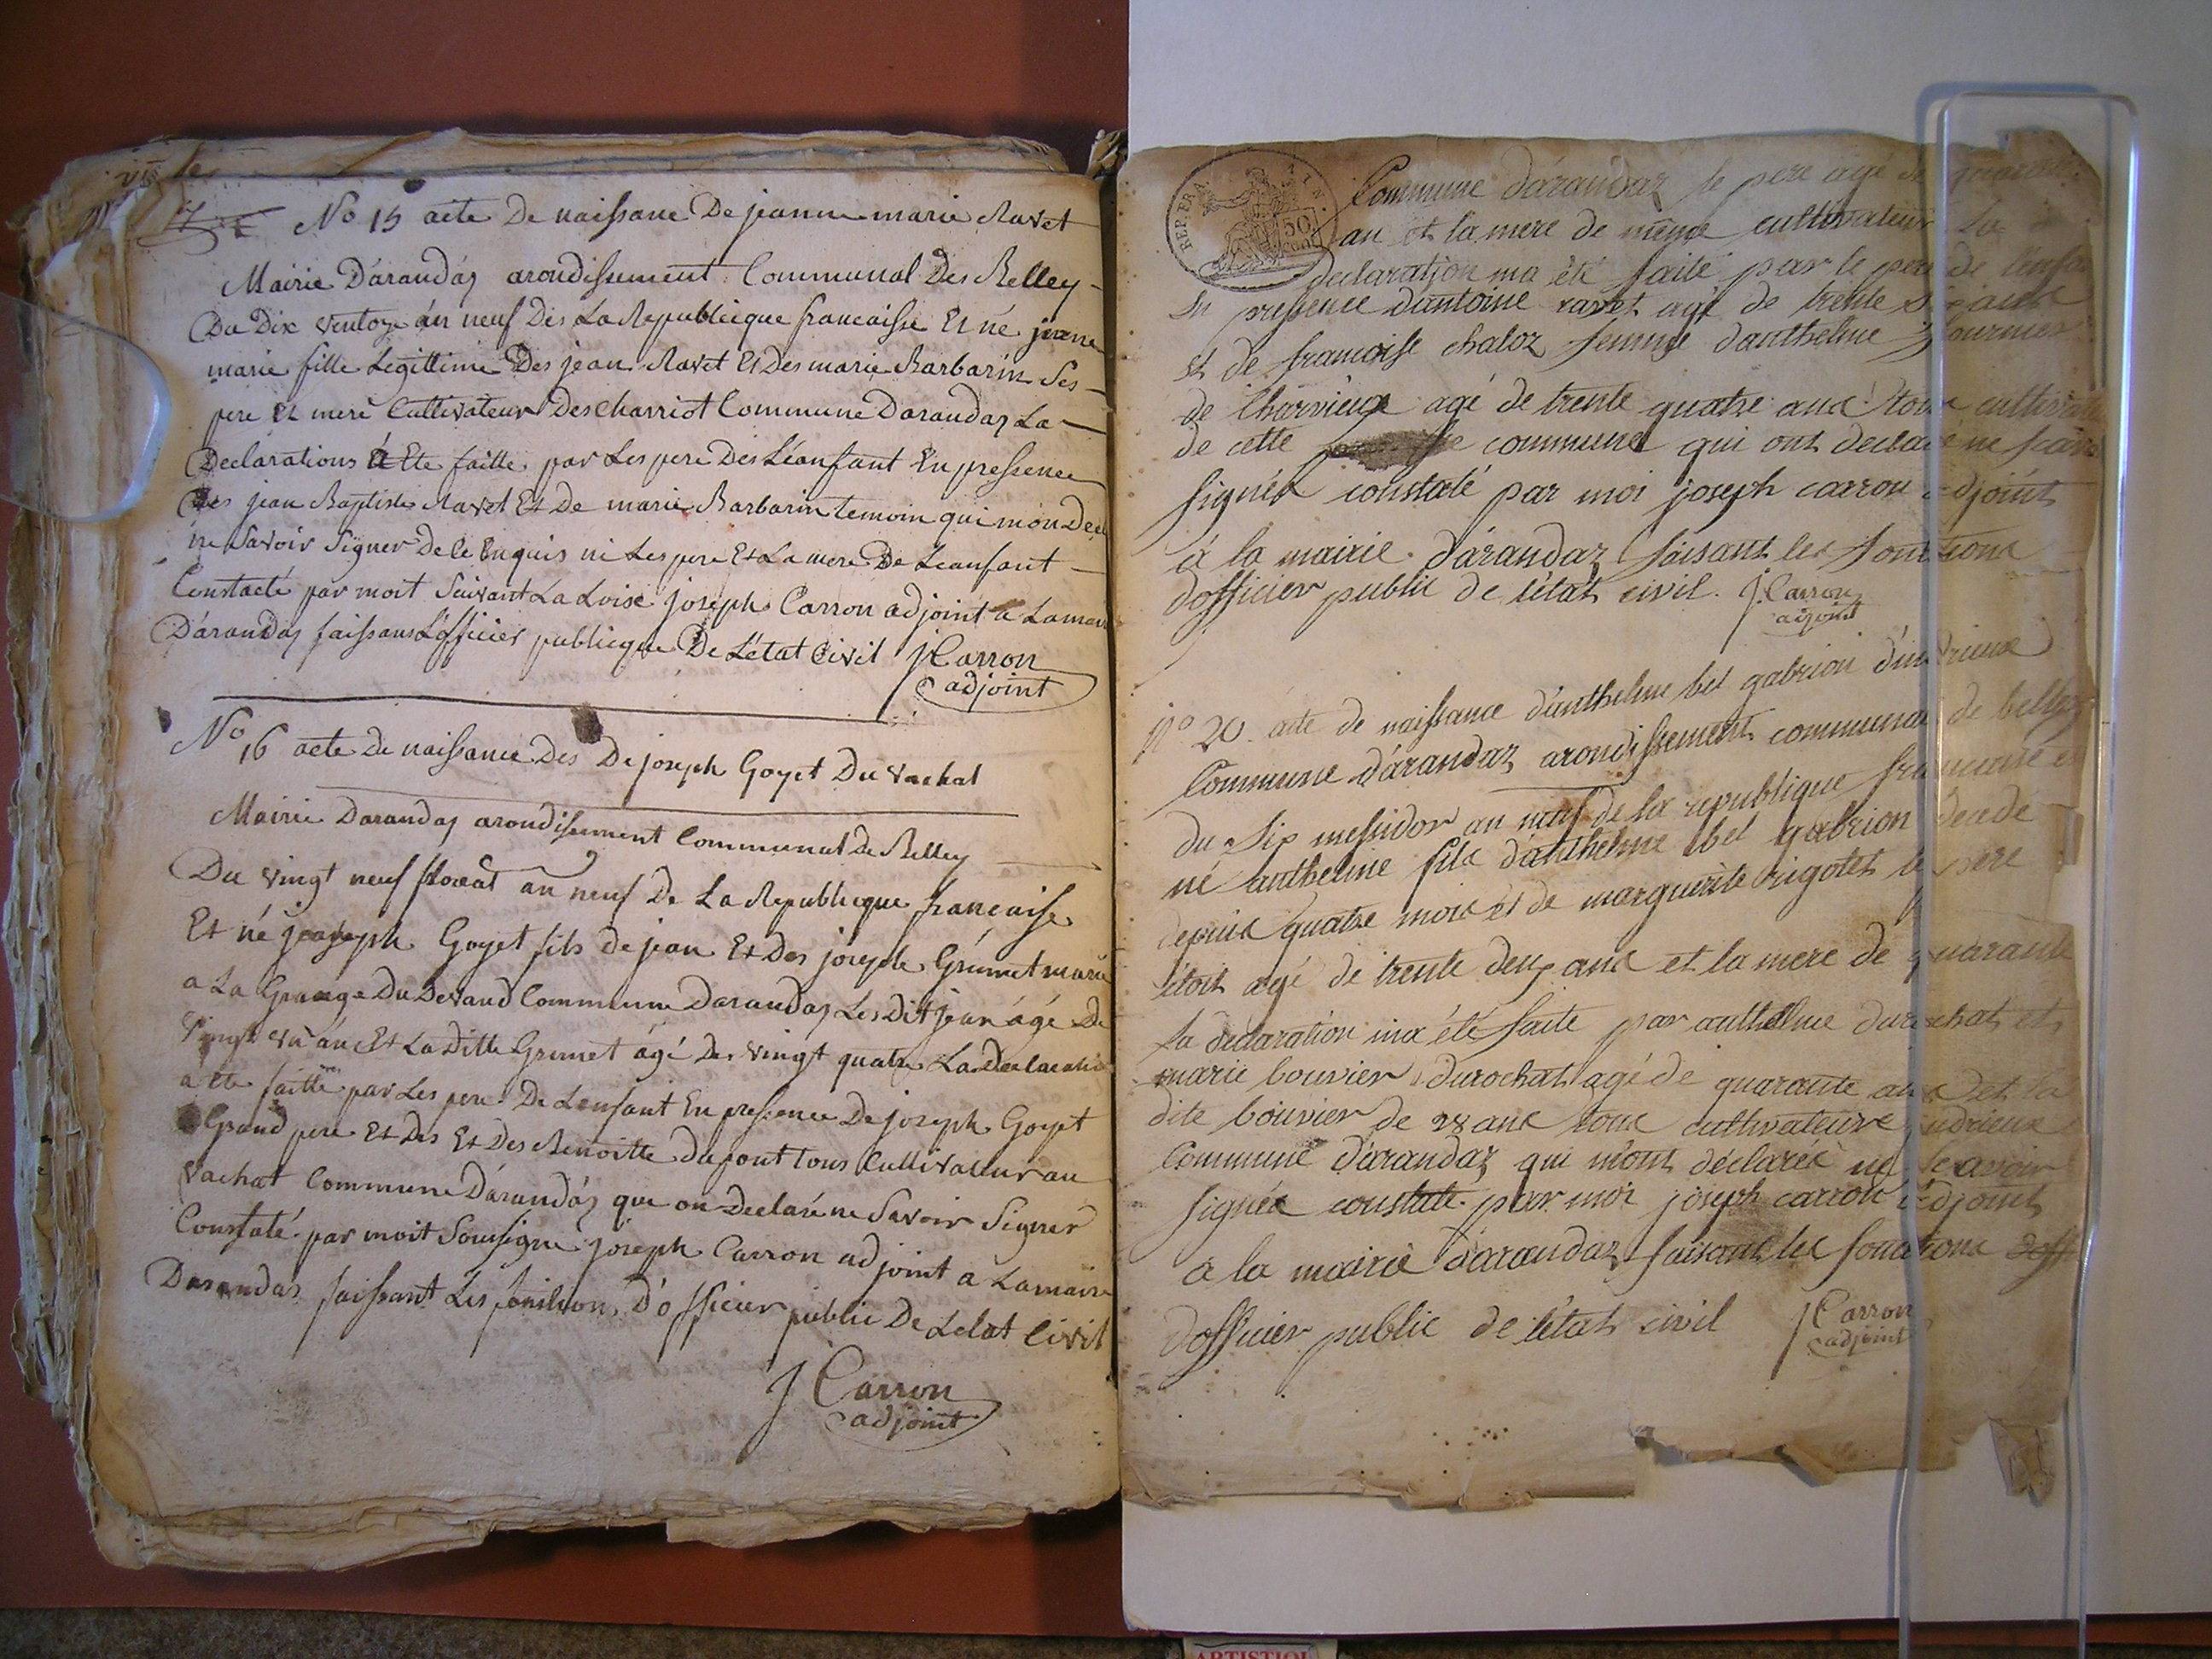 No 15 acte De naissance De jeanne marie Ravet
Mairie D'arandas arondissement Communal Des Belley
Du Dix ventoze án neuf Des La Republicque francaisse Et né jeanne
marie fille Legittime Des jean Ravet Et Des marie Barbarin Ses
pere Et mere Cultivateur Des Charriot Commune Darandas La
Declarations á Ete faitte par Les pere Des Léanfant En pressence
Des jean Baptiste Ravet Et De marie Barbarin temoin qui mon Decl
ne Savoir Signer De le Enquis ni Les pere Et La mere De Leanfant
Constaté par moit Suivant La Loise joseph Carron adjoint a Lamair
D'arandas faissans L'officier publicque De L'état Civil J Carron
adjoint
No 16 acte De naissance Des De joseph Goyet Du vachat
Mairie Darandas arondissement Communal De Belley
Du vingt neuf floreat an neuf De La Republicque francaise
Et né joseph Goyet fils De jean Et Des joseph Grumet marié
a La Grange Du Devand Commune Darandas Les Dit jean ágé De
vingt un an Et La Ditte Grumet ágé Des vingt quatre La Declaratio
a ete faitte par Les pere De Lenfant En pressence De joseph Goyet
Grand pere Et Des Et Des Benoitte Dupont tous Cultivateur au
vachat Commune D'arandás que on Declaré ne Savoir Signer
Constaté par moit Sousigne joseph Carron adjoint a Lamairi
Darandas faissant Les fontion D'officier public De Letat Civil
J Carron
adjoint
REP. FRA 50 cent
Commune d'arandaz le pere agé de
an et la mere de même cultivateur La
declaration ma été faite par le pere de l'enfa
En pressence d'antoine ravet agé de trente ans
et de francoise chaloz femme d'anthelme fournier
de Charvieux agé de trente quatre ans tous cultivat
de cette commune qui ont declaré ne savoi
signés constaté par moi joseph carron adjoint
á la mairie d'arandaz faisant les fonctions
d'officier public de l'état civil. J. Carron
adjoint
No 20. acte de naissance d'anthelme bel gabrion d'indrieux
Commune d'arandaz arondissement communal de belley
du Six messidor an neuf de la republique francaise e
né anthelme fils d'anthelme bel gabrion décédé
depuis quatre mois et de marguerite rigotet le pere
étoit agé de trente deux ans et la mere de quarante
la declaration ma été faite par anthelme durochat et
marie bouvier durochat agé de quarante ans et la
dite bouvier de 28 ans tous cultivateurs indrieux
Commune d'arandaz qui m'ont déclarés ne scavoir
signés constaté par moi joseph carron adjoint
a la mairie d'arandaz faisant les fonctions doff
d'officier public de l'état civil J Carron
adjoint